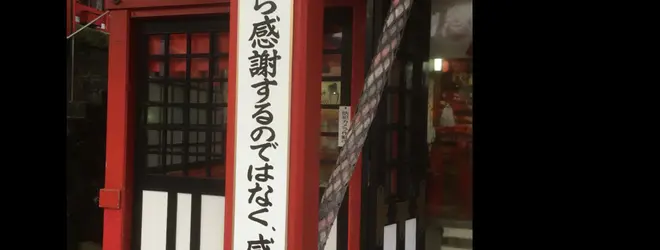 ら感謝するのではなく、感